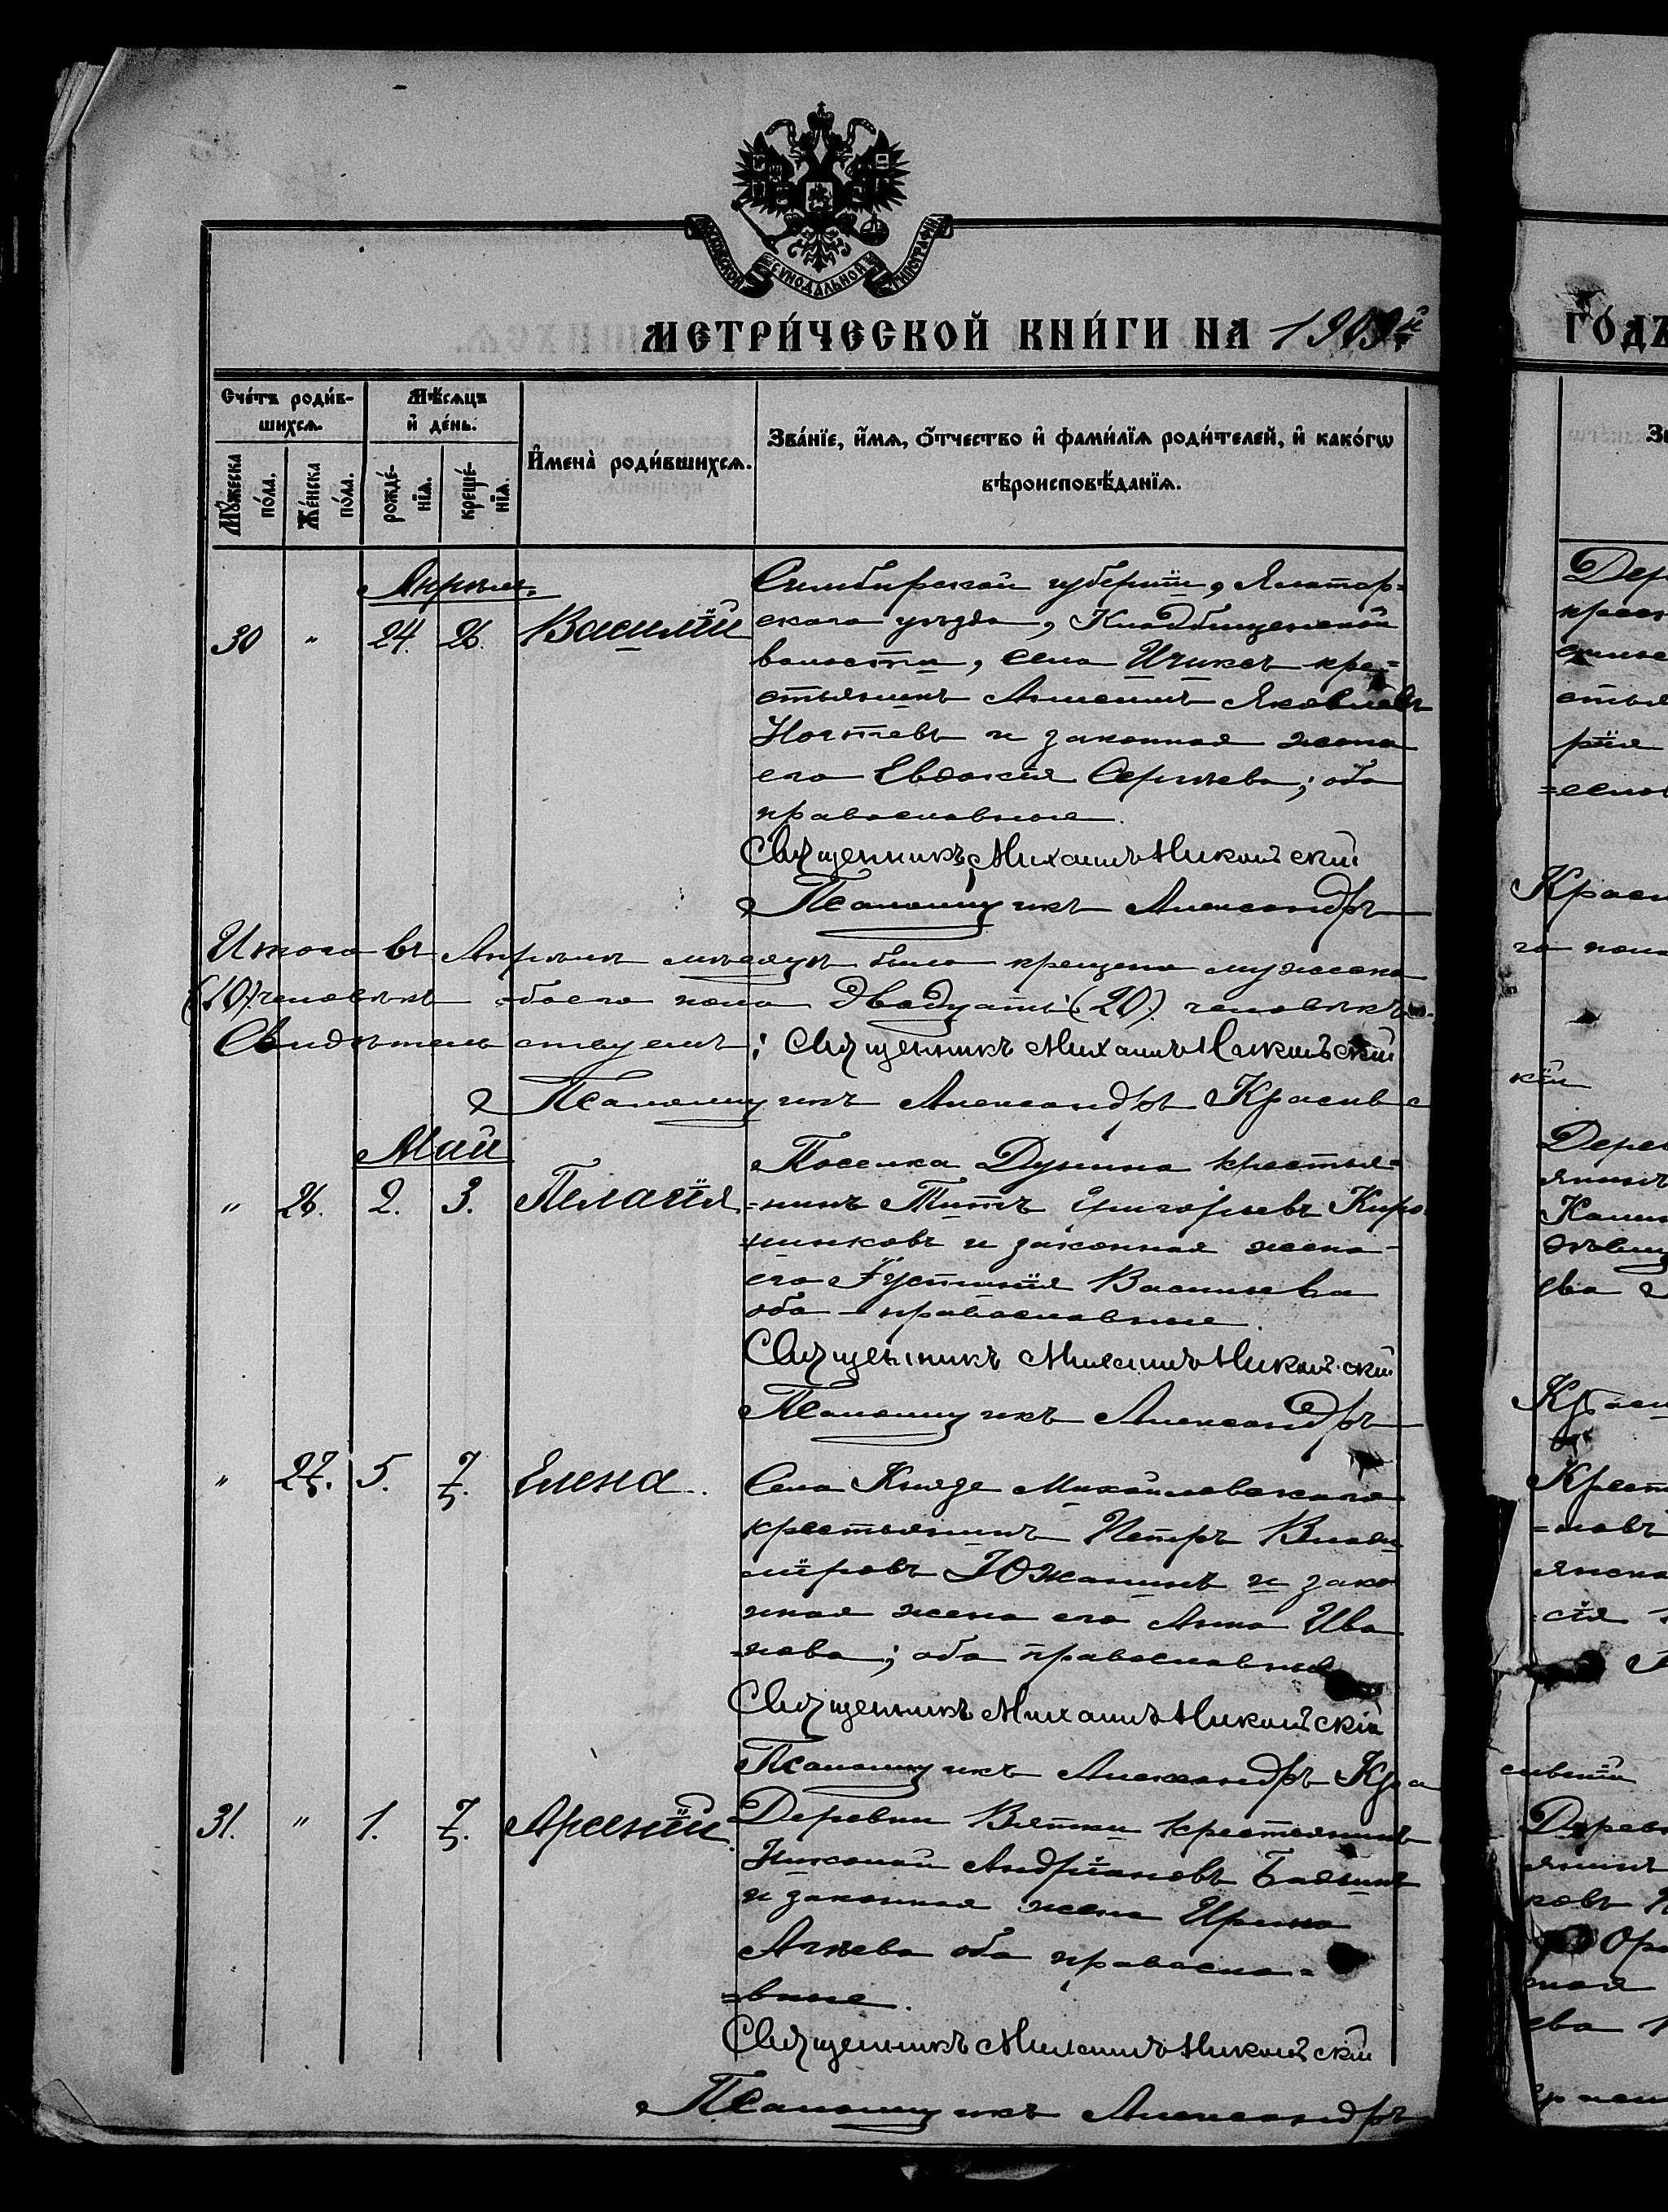 МОСКОВСКОЙ СѴНОДАЛЬНОЙ ТИПОГРАФІИ
МЕТРИ́ЧЕСКОЙ КНИ́ГИ НА 1909й
Сче́тъ роди́в-
шихсѧ.
Мѣ́сѧцъ
и҆ де́нь.
И҆мена̀ роди́вшихсѧ.
Зва́нїе, и҆́мѧ, ѻ҆́тчество и҆ фами́лїѧ роди́телей, и҆ како́гѡ
вѣроисповѣ́данїѧ.
Мꙋ́жеска
по́ла.
Же́нска
по́ла.
рожде́-
нїѧ.
креще́-
нїѧ.
Апрѣль.
30 " 24. 26. Василій
Симбирской губерніи, Алатор-
скаго уѣзда, Кладбищенской
волости, села Ичиксъ кре=
стьянинъ Яковлевъ
Ногтевъ и законная жена
его Евдокія Сергѣева; оба
православные.
Священникъ Михаилъ Никольскій
Псаломщикъ Александръ
Итого въ Апрѣлѣ мѣсяцѣ было крещено мужеска
(10) человѣкъ обоего пола двадцать (20) человѣкъ.
Свидѣтельствуемъ: Священникъ Михаилъ Никольскій
Псаломщикъ Александръ Красив
Май
" 26. 2. 3. Пелагія.
Поселка Дунина крестья=
=нинъ Титъ Григорьевъ Киро
и законная жена
его Іустинія Васильева
оба православные.
Священникъ Михаилъ Никольскій
Псаломщикъ Александръ
" 27. 5. 7. Елена.
Села Князе Михайловскаго
крестьянинъ Петръ Влади
міровъ Южанинъ и зако
нная жена его Анна Ива
=нова; оба православные
Священникъ Михаилъ Никольскій
Псаломщикъ Александръ Кра
31. " 1. 7. Арсеній.
Деревни Вятки крестьянинъ
Николай Андріановъ
и законная жена Ирина
оба правосла=
=вные.
Священникъ Михаилъ Никольскій
Псаломщикъ Александръ
ГО́ДЪ
Дер
Красн
кій
Дерев
Крест
Дерев
янинъ